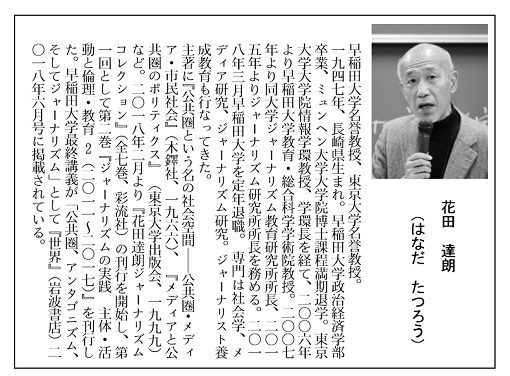 花田　達朗
（はなだ　たつろう）
早稲田大学名誉教授、東京大学名誉教授。
一九四七年、長崎県生まれ。早稲田大学政治経済学部
卒業、ミュンヘン大学大学院博士課程満期退学。東京
大学大学院情報学環教授、学環長を経て、二〇〇六年
より早稲田大学教育・総合科学学術院教授。二〇〇七
年より同大学ジャーナリズム教育研究所所長、二〇一
五年よりジャーナリズム研究所所長を務める。二〇一
八年三月早稲田大学を定年退職。専門は社会学、メ
ディア研究、ジャーナリズム研究。ジャーナリスト養
成教育も行なってきた。
主著に『公共圏という名の社会空間――公共圏・メディ
ア・市民社会』（木鐸社、一九九六）、『メディアと公
共圏のポリティクス』（東京大学出版会、一九九九）
など。二〇一八年二月より『花田達朗ジャーナリズム
コレクション』（全七巻、彩流社）の刊行を開始し、第
一回として第二巻『ジャーナリズムの実践　主体・活
動と倫理・教育２（二〇一一～二〇一七）』を刊行し
た。早稲田大学最終講義が「公共圏、アンタゴニズム、
そしてジャーナリズム」として『世界』（岩波書店）二
〇一八年六月号に掲載されている。